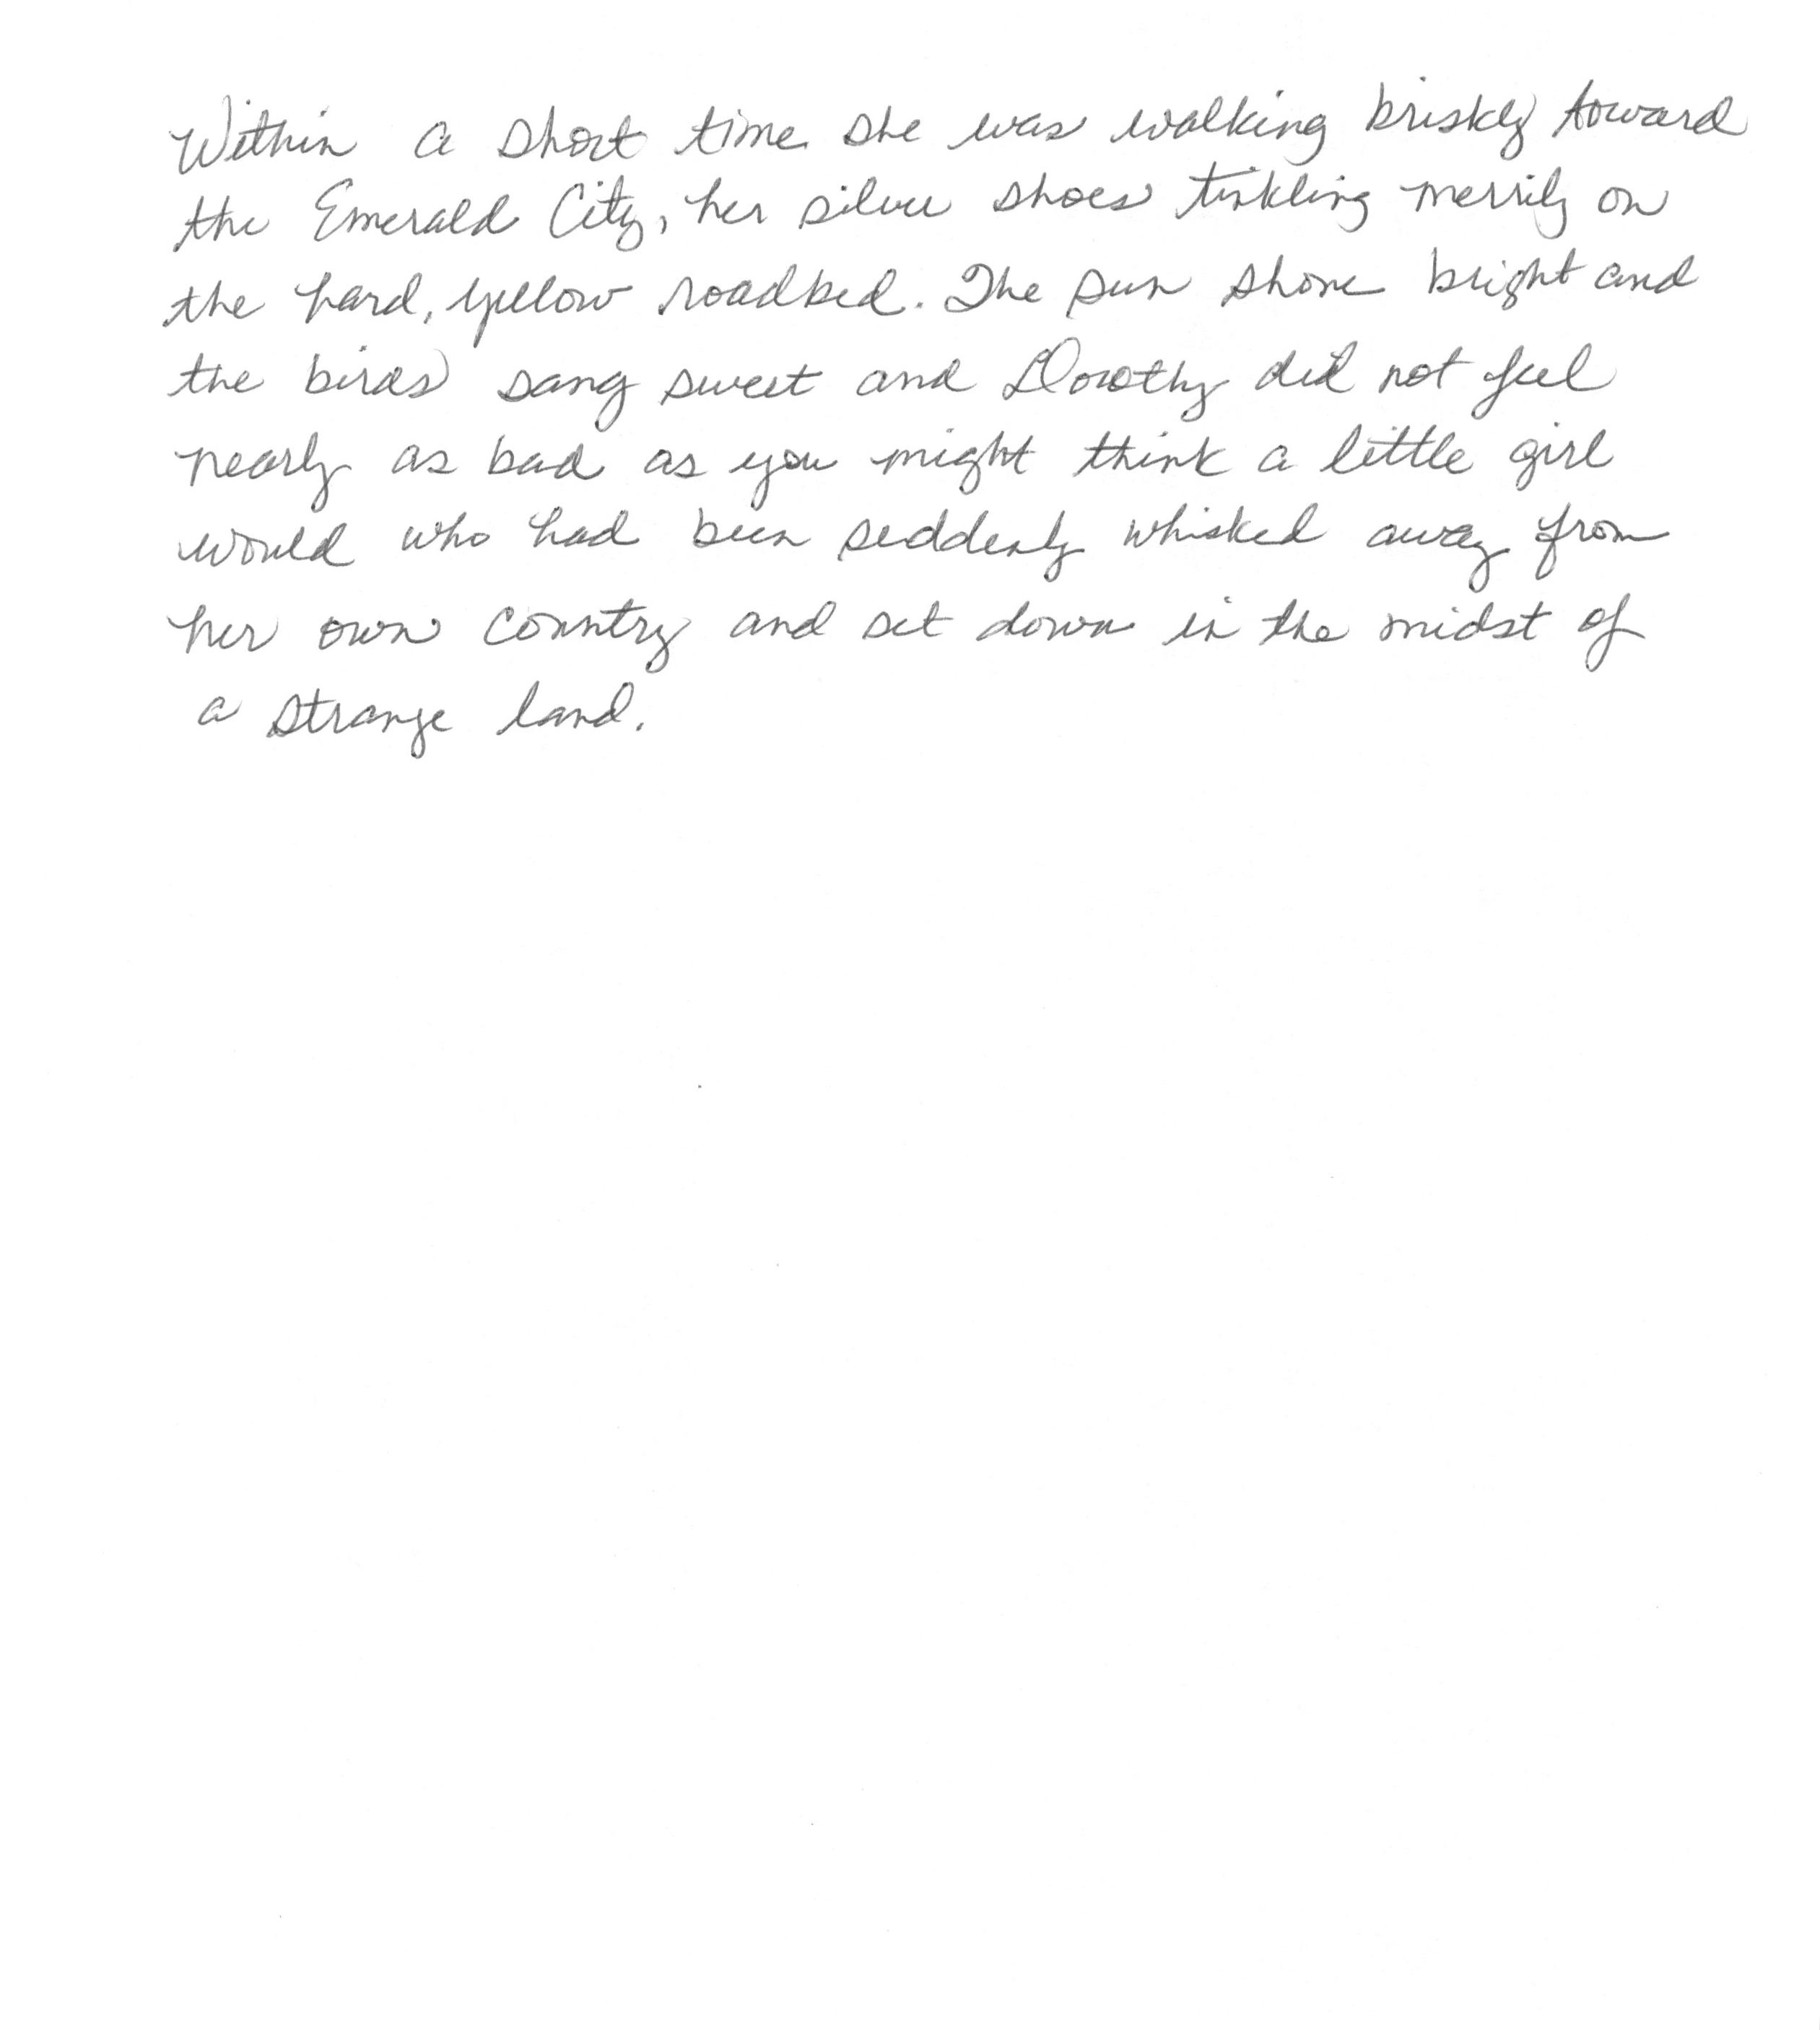 Within a short time she was walking briskly toward
the Emerald City, her silver shoes tinkling merrily on
the hard, yellow roadbed. The sun shone bright and
the birds sang sweet and Dorothy did not feel
nearly as bad as you might think a little girl
would who had been seddenly whisked away from
her own country and set down in the midst of
a strange land.